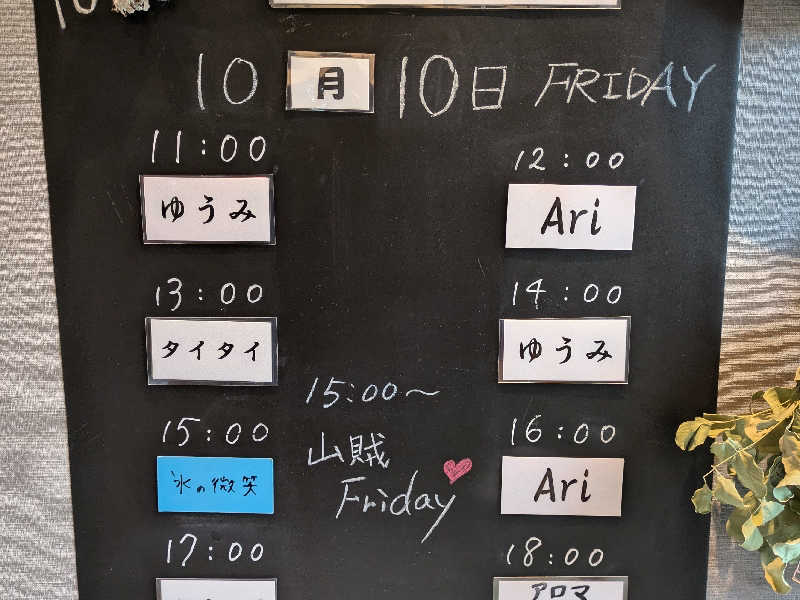 10月10日 FRIDAY
11:00
ゆうみ
12:00
Ari
13:00
タイタイ
14:00
ゆうみ
15:00
氷の微笑
15:00～
山賊
Friday
16:00
Ari
17:00
18:00
アロマ